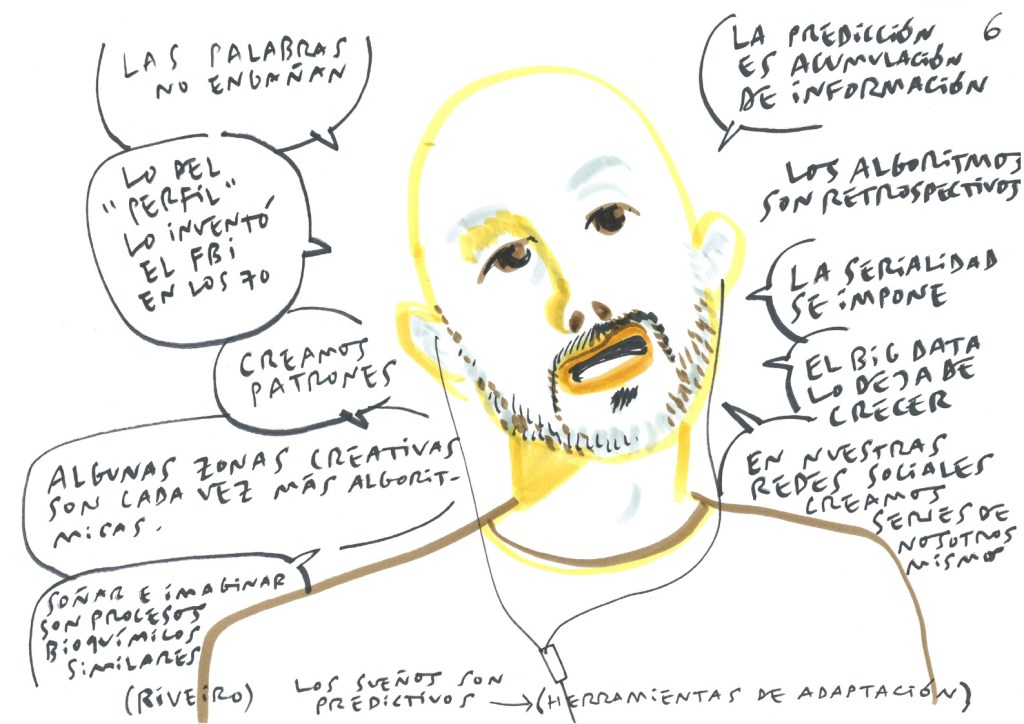 LAS PALABRAS
NO ENGAÑAN
LO DEL
"PERFIL"
LO INVENTÓ
EL FBI
EN LOS 70
CREAMOS
PATRONES
ALGUNAS ZONAS CREATIVAS
SON CADA VEZ MÁS ALGORIT-
MICAS.
SOÑAR E IMAGINAR
SON PROCESOS
BIOQUÍMICOS
SIMILARES
(RIVEIRO)
LOS SUEÑOS SON
PREDICTIVOS → (HERRAMIENTAS DE ADAPTACIÓN)
6
LA PREDICCIÓN
ES ACUMULACIÓN
DE INFORMACIÓN
LOS ALGORITMOS
SON RETROSPECTIVOS
LA SERIALIDAD
SE IMPONE
EL BIG DATA
LO DEJA DE
CRECER
EN NUESTRAS
REDES SOCIALES
CREAMOS
SERIES DE
NOSOTROS
MISMO